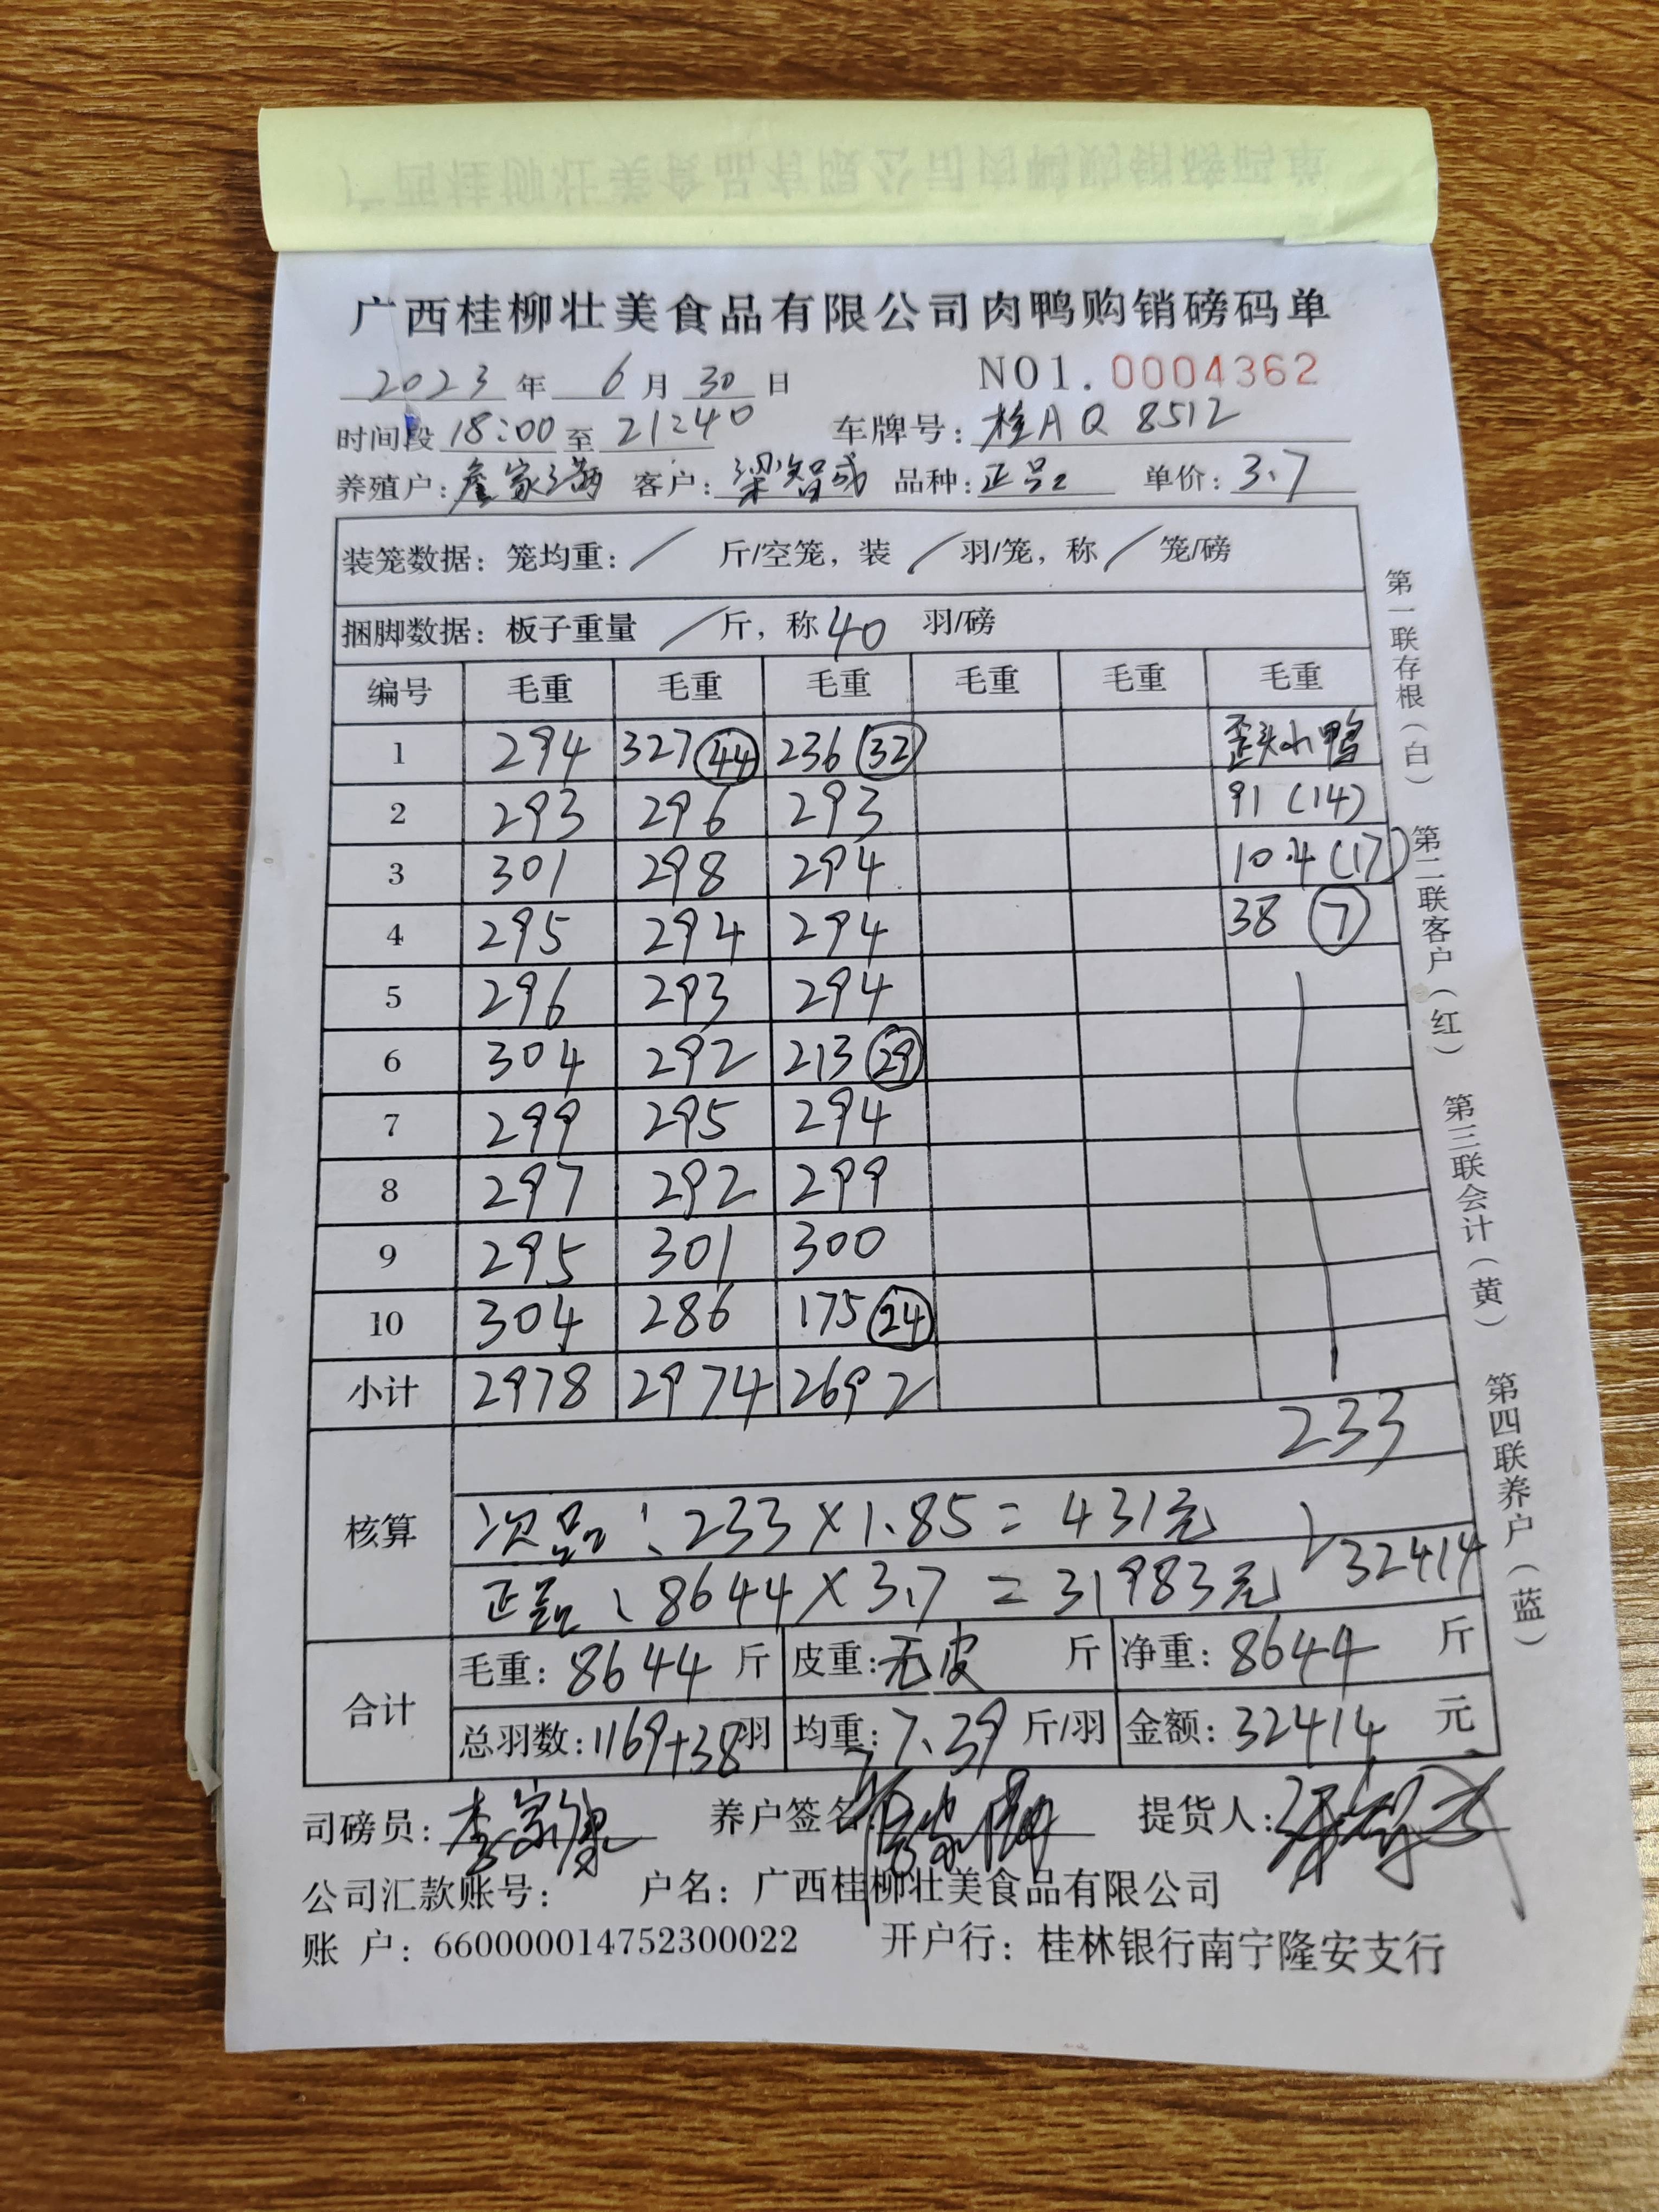 广西桂柳壮美食品有限公司肉鸭购销磅码单
2023 年 6 月 30 日 NO1. 0004362
时间段 18:00 至 21:40 车牌号: 桂A Q 8512
养殖户: 詹家满 客户: 梁智成 品种: 正品 单价: 3.7
装笼数据: 笼均重: / 斤/空笼, 装 / 羽/笼, 称 / 笼/磅
捆脚数据: 板子重量 / 斤, 称 40 羽/磅
编号 毛重 毛重 毛重 毛重 毛重 毛重
1 294 327 (44) 236 (32) 歪头小鸭
2 293 296 293 91 (14)
3 301 298 294 104 (17)
4 295 294 294 38 (7)
5 296 293 294
6 304 292 213 (29)
7 299 295 294
8 297 292 299
9 295 301 300
10 304 286 175 (24)
小计 2978 2974 2692
233
核算
次品: 233 × 1.85 = 431元
正品: 8644 × 3.7 = 31983元
32414
合计
毛重: 8644 斤 皮重: 无皮 斤 净重: 8644 斤
总羽数: 1169+38羽 均重: 7.39 斤/羽 金额: 32414 元
司磅员: 李家康 养户签名: 提货人:
公司汇款账号: 户名: 广西桂柳壮美食品有限公司
账 户: 660000014752300022 开户行: 桂林银行南宁隆安支行
第一联存根(白) 第二联客户(红) 第三联会计(黄) 第四联养户(蓝)